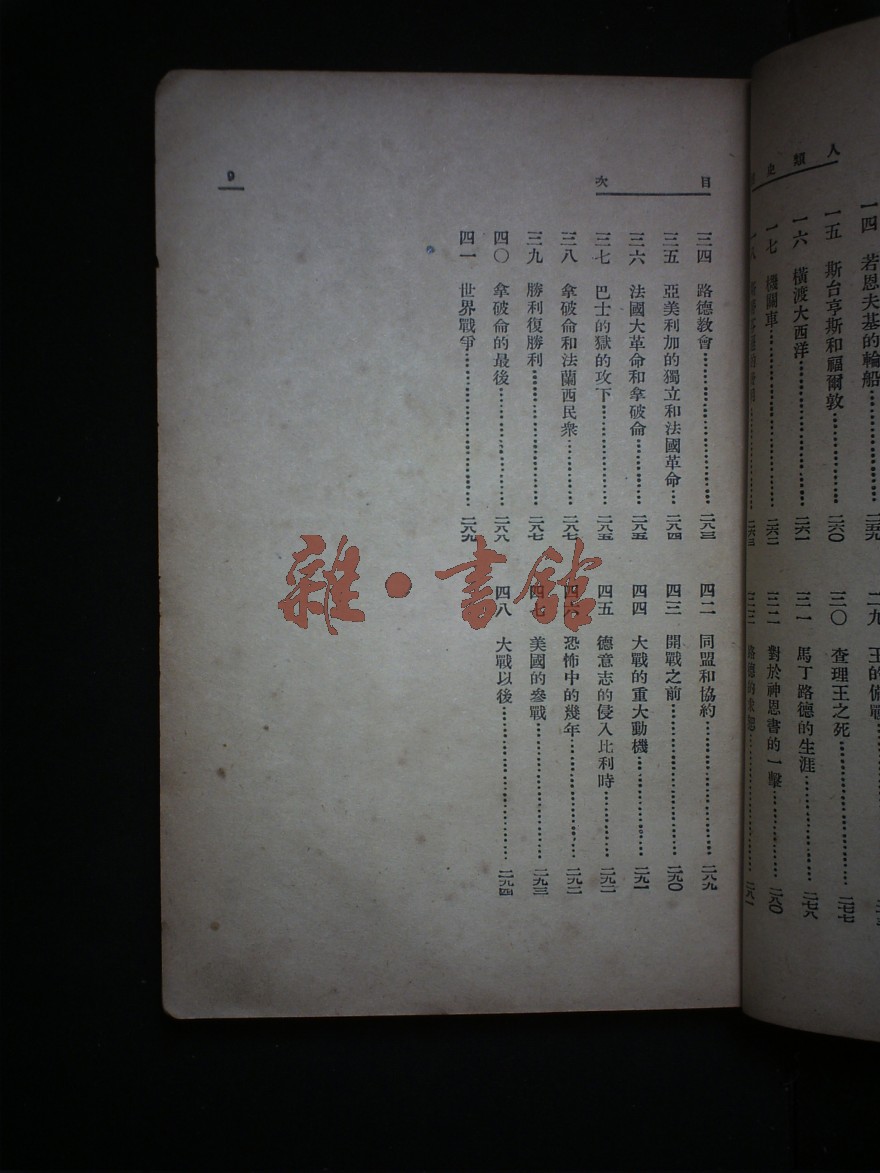 人類史
一四 若恩夫基的輪船 二五九
一五 斯台亨斯和福爾敦 二六〇
一六 橫渡大西洋 二六一
一七 機關車 二六二
一八
二九 王的備戰
三〇 查理王之死 二七七
三一 馬丁路德的生涯 二七八
三二 對於神恩書的一擊 二八〇
三三 二八一
目次
三四 路德教會 二八三
三五 亞美利加的獨立和法國革命 二八四
三六 法國大革命和拿破侖 二八五
三七 巴士的獄的攻下 二八五
三八 拿破命和法蘭西民衆 二八七
三九 勝利復勝利 二八七
四〇 拿破命的最後 二八八
四一 世界戰爭 二八九
四二 同盟和協約 二八九
四三 開戰之前 二九〇
四四 大戰的重大動機 二九一
四五 德意志的侵入比利時 二九二
四六 恐怖中的幾年 二九二
四七 美國的參戰 二九三
四八 大戰以後 二九四
9
雜·書館